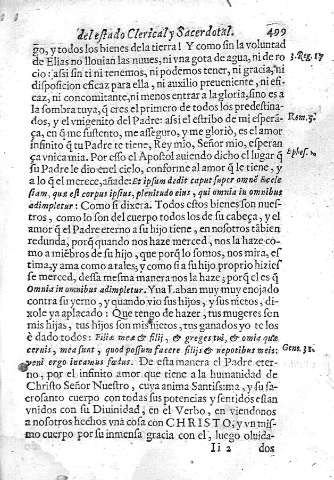 del estado Clerical, y Sacerdotal. 499
go, y todos los bienes de la tierra! Y como sin la voluntad
de Elias no llouian las nuues, ni vna gota de agua, ni de ro
cio: assi sin ti ni tenemos, ni podemos tener, ni gracia, ni
disposicion eficaz para ella, ni auxilio preueniente, ni efi-
caz, ni concomitante, ni menos entrar a la gloria, sino es a
la sombra tuya, q̃ eres el primero de todos los predestina-
dos, y el vnigenito del Padre: assi el estribo de mi espera-
ça, en q̃ me sustento, me asseguro, y me gloriò, es el amor
infinito q̃ tu Padre te tiene, Rey mio, Señor mio, esperan
ça vnica mia. Por esso el Apostol auiendo dicho el lugar q̃
su Padre le dio en el cielo, conforme al amor q̃ le tiene, y
a lo q̃ el merece, añade: Et ipsum dedit caput super omnẽ Eccle
siam, quæ est corpus ipsius, plenitudo eius, qui omnia in omnibus
adimpletur: Como si dixera. Todos estos bienes son nues-
tros, como lo son del cuerpo todos los de su cabeça, y el a-
mor q̃ el Padre eterno a su hijo tiene, en nosotros tãbien
redunda, porq̃ quando nos haze merced, nos la haze co-
mo a miẽbros de su hijo, que porq̃ lo somos, nos mira, es-
tima, y ama como a tales, y como si a su hijo proprio hizies
se merced, dessa mesma manera nos la haze; porq̃ el es q̃
Omnia in omnibus adimpletur. Yua Laban muy muy enojado
contra su yerno, y quando vio sus hijos, y sus nietos, di-
xole ya aplacado: Que tengo de hazer, tus mugeres son
mis hijas, tus hijos son mis nietos, tus ganados yo te los
è dado todos: Filiæ meæ & filij, & greges tui, & omnia quæ
cernis, mea sunt, quod possum facere filijs & nepotibus meis:
veni ergo incamus fœdus. De esta manera el Padre eter-
no, por el infinito amor que tiene a la humanidad de
Christo Señor Nuestro, cuya anima Santissima, y su sa-
crosanto cuerpo con todas sus potencias y sentidos estan
vnidos con su Diuinidad, en el Verbo, en viendonos
a nosotros hechos vna cosa con CHRISTO, y vn mis-
mo cuerpo por su inmensa gracia con el, luego oluida-
Ii 2 dos
3. Reg. 17
Rom. 5.
Ephes. 1.
Gene. 31.